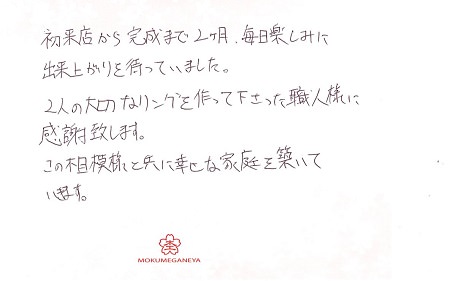 初来店から完成まで2ヶ月、毎日楽しみに
出来上がりを待っていました。
2人の大切なリングを作って下さった職人様に
感謝致します。
この木目模様と共に幸せな家庭を築いて
いきます。
MOKUMEGANEYA